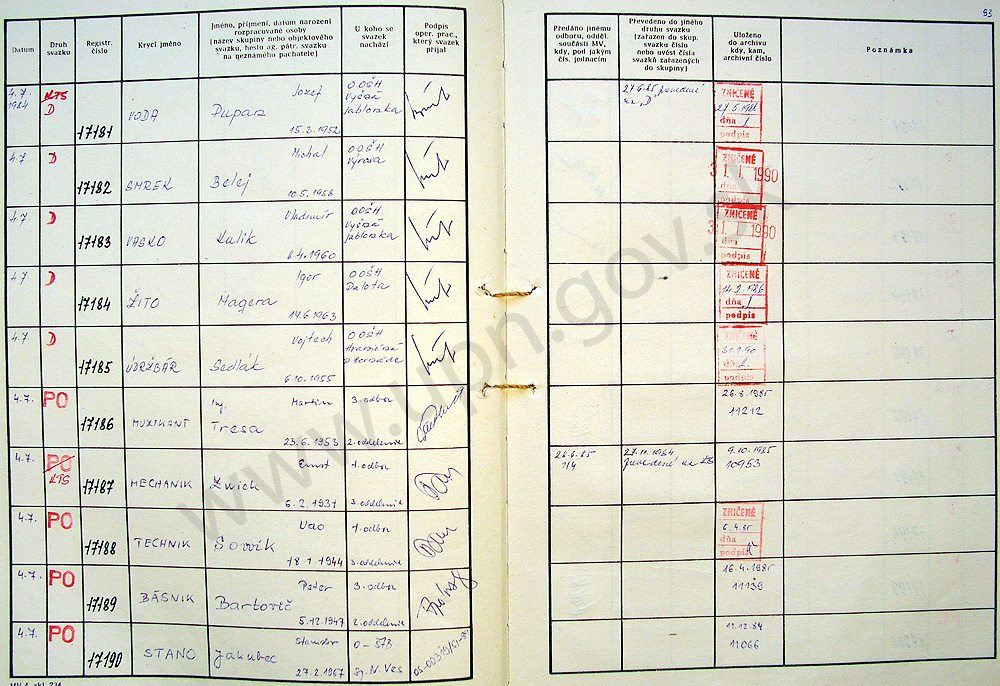 93
Datum
Druh svazku
Registr. číslo
Krycí jméno
Jméno, příjmení, datum narození
rozpracované osoby
(název skupiny nebo objektového
svazku, heslo ag. pátr. svazku
na neznámého pachatele)
U koho se
svazek
nachází
Podpis
oper. prac.,
který svazek
přijal
Předáno jinému
odboru, odděl.
součásti MV,
kdy, pod jakým
čís. jednacím
Převedeno do jiného
druhu svazku
(zařazen do skup.
svazku číslo
nebo uvést čísla
svazků zařazených
do skupiny)
Uloženo
do archivu
kdy, kam,
archivní číslo
Poznámka
4.7. 1984
KTS D
17181
VODA
Jozef
15.3.1952
OOŠH
Vyšná
Jablonka
na "D"
ZNIČENÉ
dňa
podpis
4.7
D
17182
SMREK
Michal
Belej
10.5.1958
OOŠH
Výrava
ZNIČENÉ
31. I. 1990
dňa
podpis
4.7.
D
17183
VASKO
Vladimír
Kulik
8.4.1960
OOŠH
Vyšná
Jablonka
ZNIČENÉ
31. I. 1990
dňa
podpis
4.7
D
17184
ŽITO
Igor
Magera
14.6.1963
OOŠH
Palota
ZNIČENÉ
14.2.1986
dňa
podpis
4.7
D
17185
ÚDRŽBÁR
Vojtech
Sedlák
6.10.1955
OOŠH
ZNIČENÉ
31.1.90
dňa
podpis
4.7.
PO
17186
MUZIKANT
Ing. Martin
Tresa
23.6.1953
3. odbor
2. oddelenie
26.8.1985
11212
4.7.
PO
KTS
17187
MECHANIK
Ernst
Zwick
6.2.1937
1. odbor
3. oddelenie
26.6.85
114
27.11.1984
9.10.1985
10953
4.7.
PO
17188
TECHNIK
18.1.1944
1. odbor
3. oddelenie
ZNIČENÉ
6.4.85
dňa
podpis
4.7.
PO
17189
BÁSNIK
Peter
Bartovič
5.12.1947
3. odbor
2. oddelenie
16.4.1985
11139
4.7.
PO
17190
STANO
Stanislav
Jakubec
27.2.1967
O-ŠTB
Sp. N. Ves
11.12.84
11066
www.upn.gov.sk